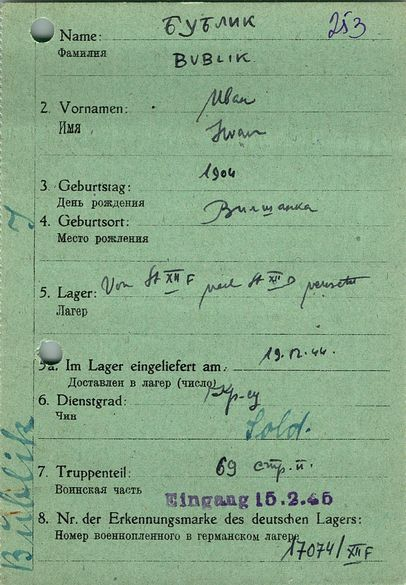 БУБЛИК
253
Name:
Фамилия
BUBLIK.
2. Vornamen:
Иван
Имя
Iwan
3. Geburtstag:
1904
День рождения
4. Geburtsort:
Вилшанка
Место рождения
5. Lager:
Von St XII F nach St XII D versetzt
Лагер
5a. Im Lager eingeliefert am:
Доставлен в лагер (число)
6. Dienstgrad:
Кр-ец
Чин
Sold.
7. Truppenteil:
69 стр. п.
Воинская часть
Eingang 15.2.45
8. Nr. der Erkennungsmarke des deutschen Lagers:
Номер военнопленного в германском лагере
17074/XII F
Bublik J